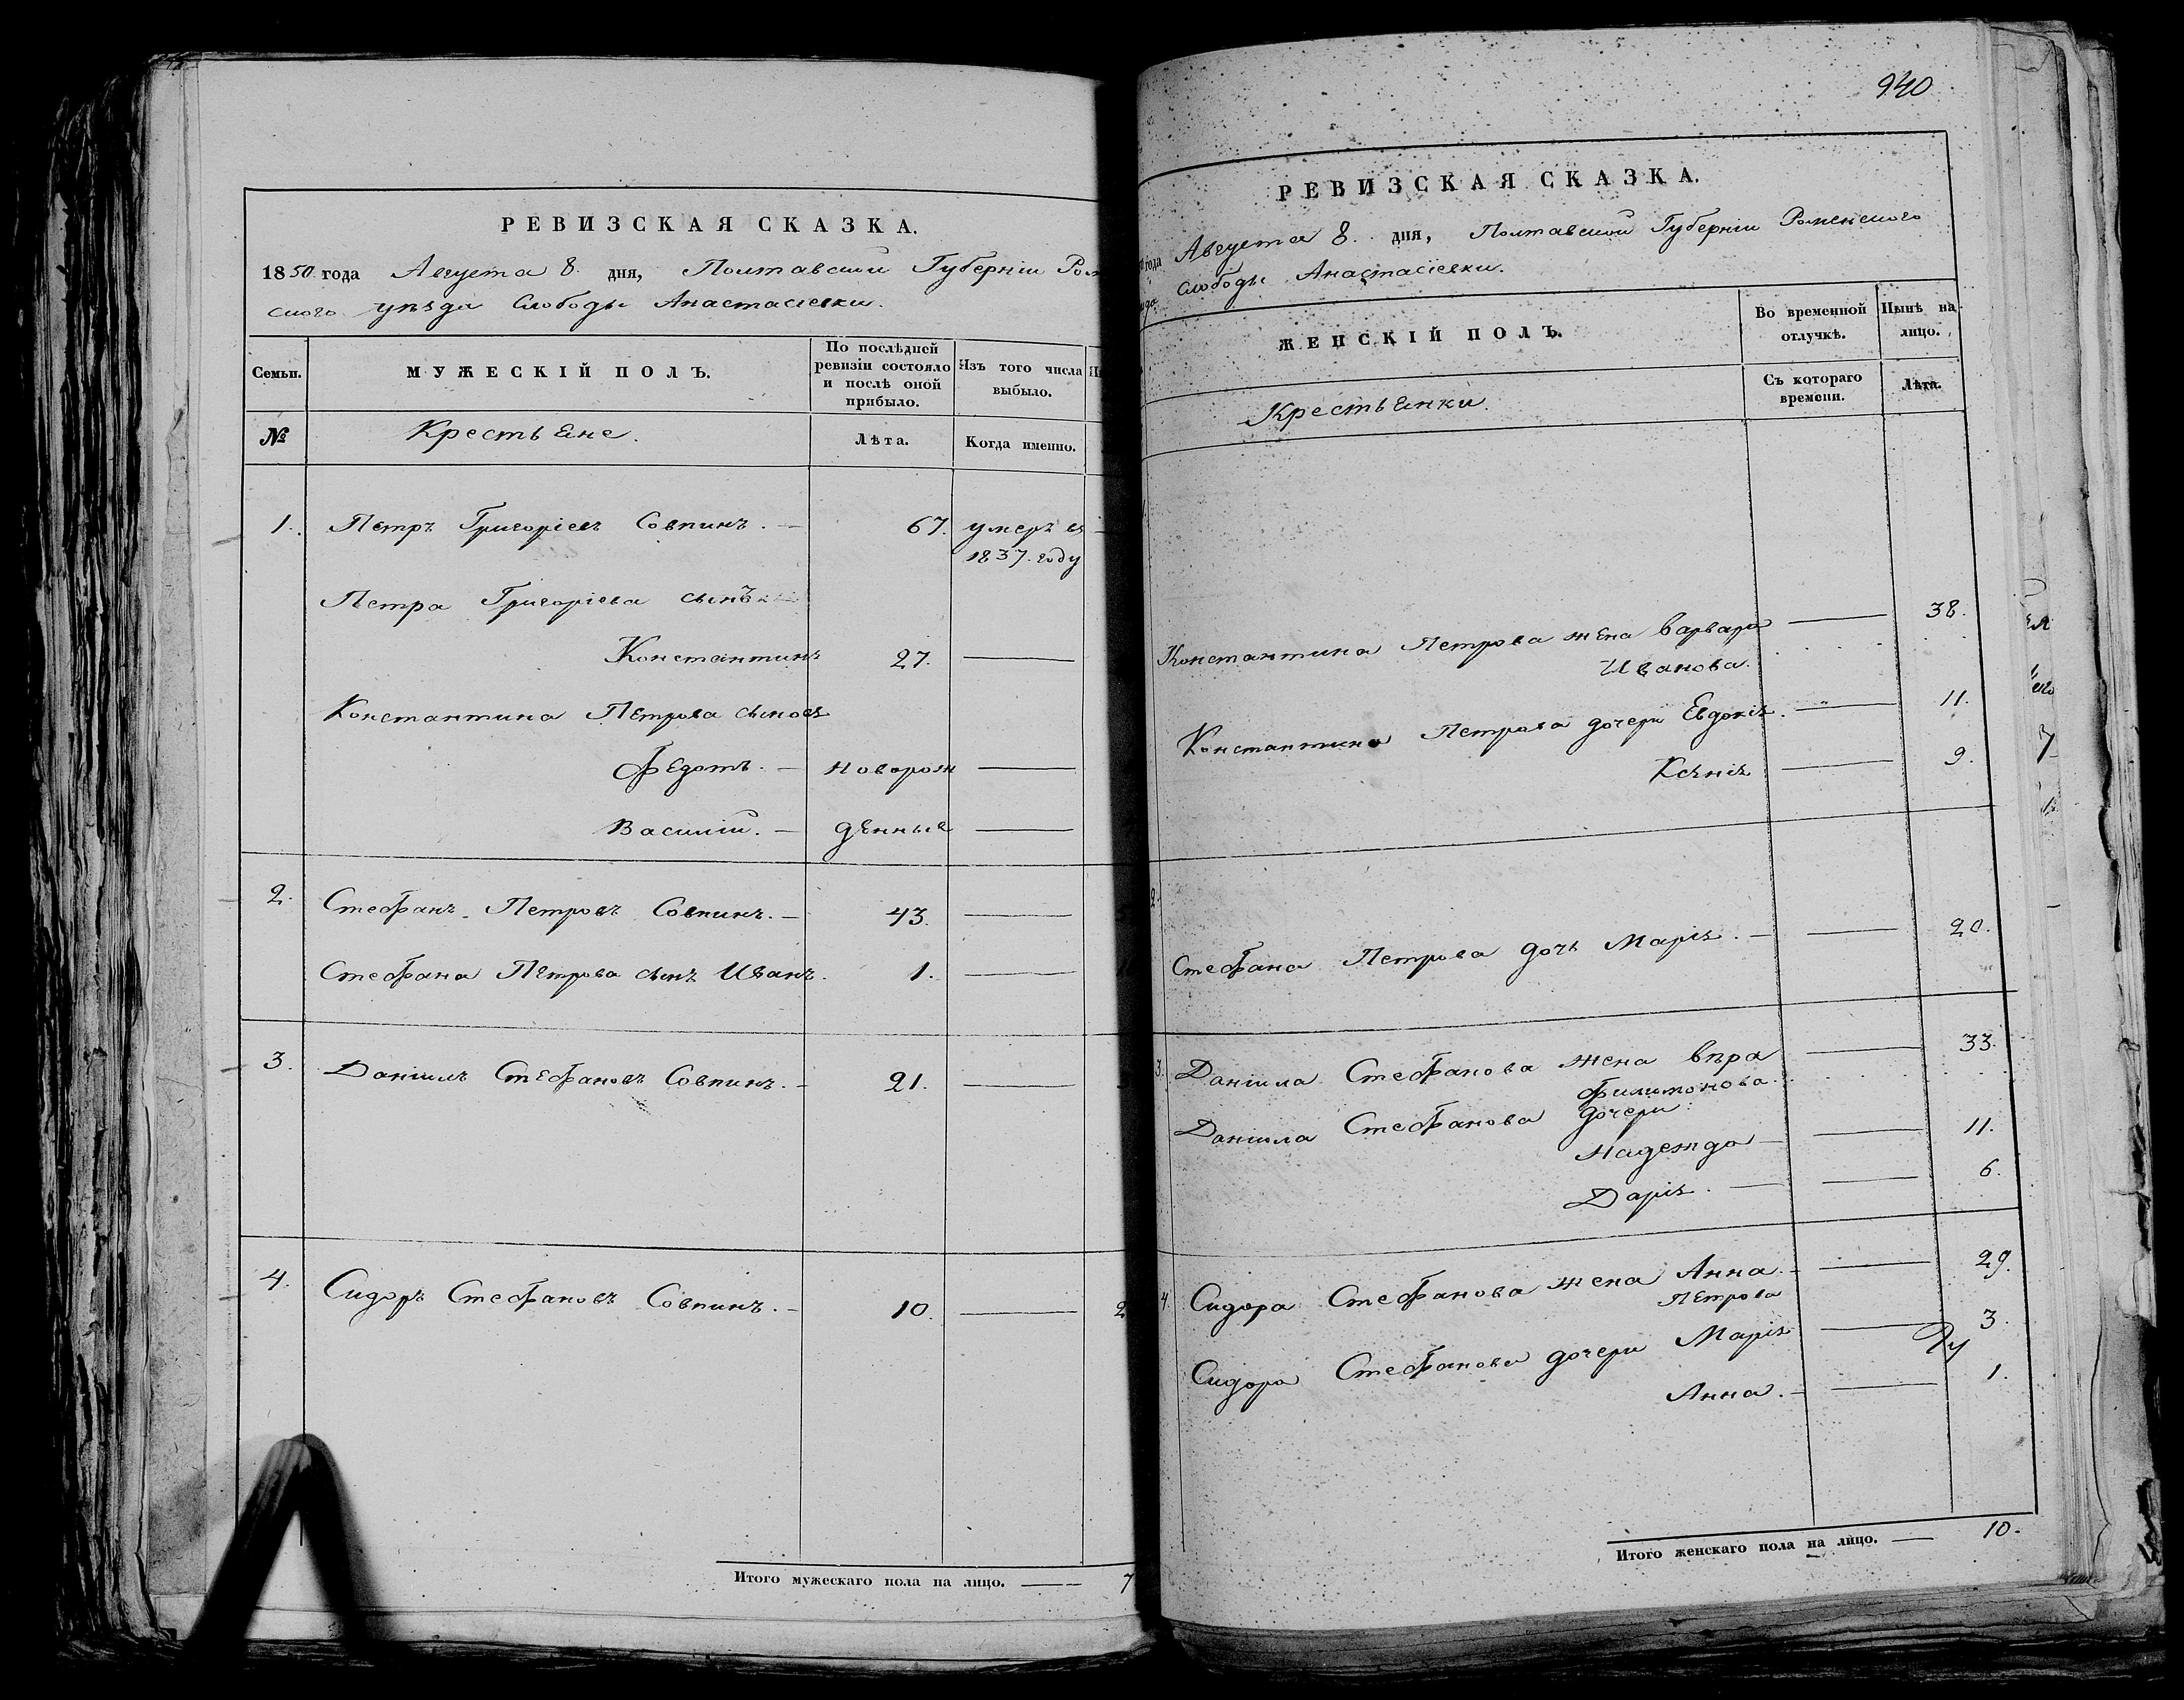 РЕВИЗСКАЯ СКАЗКА.
1850 года Августа 8. дня, Полтавской Губерніи Ром
ского уѣзда Слободы Анастасіевки.
Семьи.
МУЖЕСКІЙ ПОЛЪ.
По послѣдней ревизіи состояло и послѣ оной прибыло.
Изъ того числа выбыло.
№
Крестьяне.
Лѣта.
Когда именно.
1. Петръ Григоріевъ Совпинъ. — 67. умеръ въ
1837. году
Петра Григоріева сынъ
Константинъ 27. —
Константина Петрова сыновья
Федотъ. — новорож —
Василій. — денные —
2. Стефанъ Петровъ Совпинъ. — 43. —
Стефана Петрова сынъ Иванъ. 1. —
3. Даніилъ Стефановъ Совпинъ. — 21. —
4. Сидоръ Стефановъ Совпинъ. — 10. — 2
Итого мужескаго пола на лицо. — 7
940
РЕВИЗСКАЯ СКАЗКА.
года Августа 8. дня, Полтавской Губерніи Роменского
Слободы Анастасіевки.
ЖЕНСКІЙ ПОЛЪ.
Во временной отлучкѣ.
Нынѣ на лицо.
Крестьянки.
Съ котораго времени.
Лѣта.
Константина Петрова жена Варвара — 38.
Иванова.
Константина Петрова дочери Евдокія. — 11.
Ксенія — 9.
2.
Стефана Петрова дочь Марія. — — 20.
3. Даніила Стефанова жена Вѣра — 33.
Филимонова.
Даніила Стефанова дочери:
Надежда — — 11.
Дарія. — — 6.
4. Сидора Стефанова жена Анна. — — 29.
Петрова
Сидора Стефанова дочери Марія — 3.
Анна. — — 1.
Итого женскаго пола на лицо. — 10.